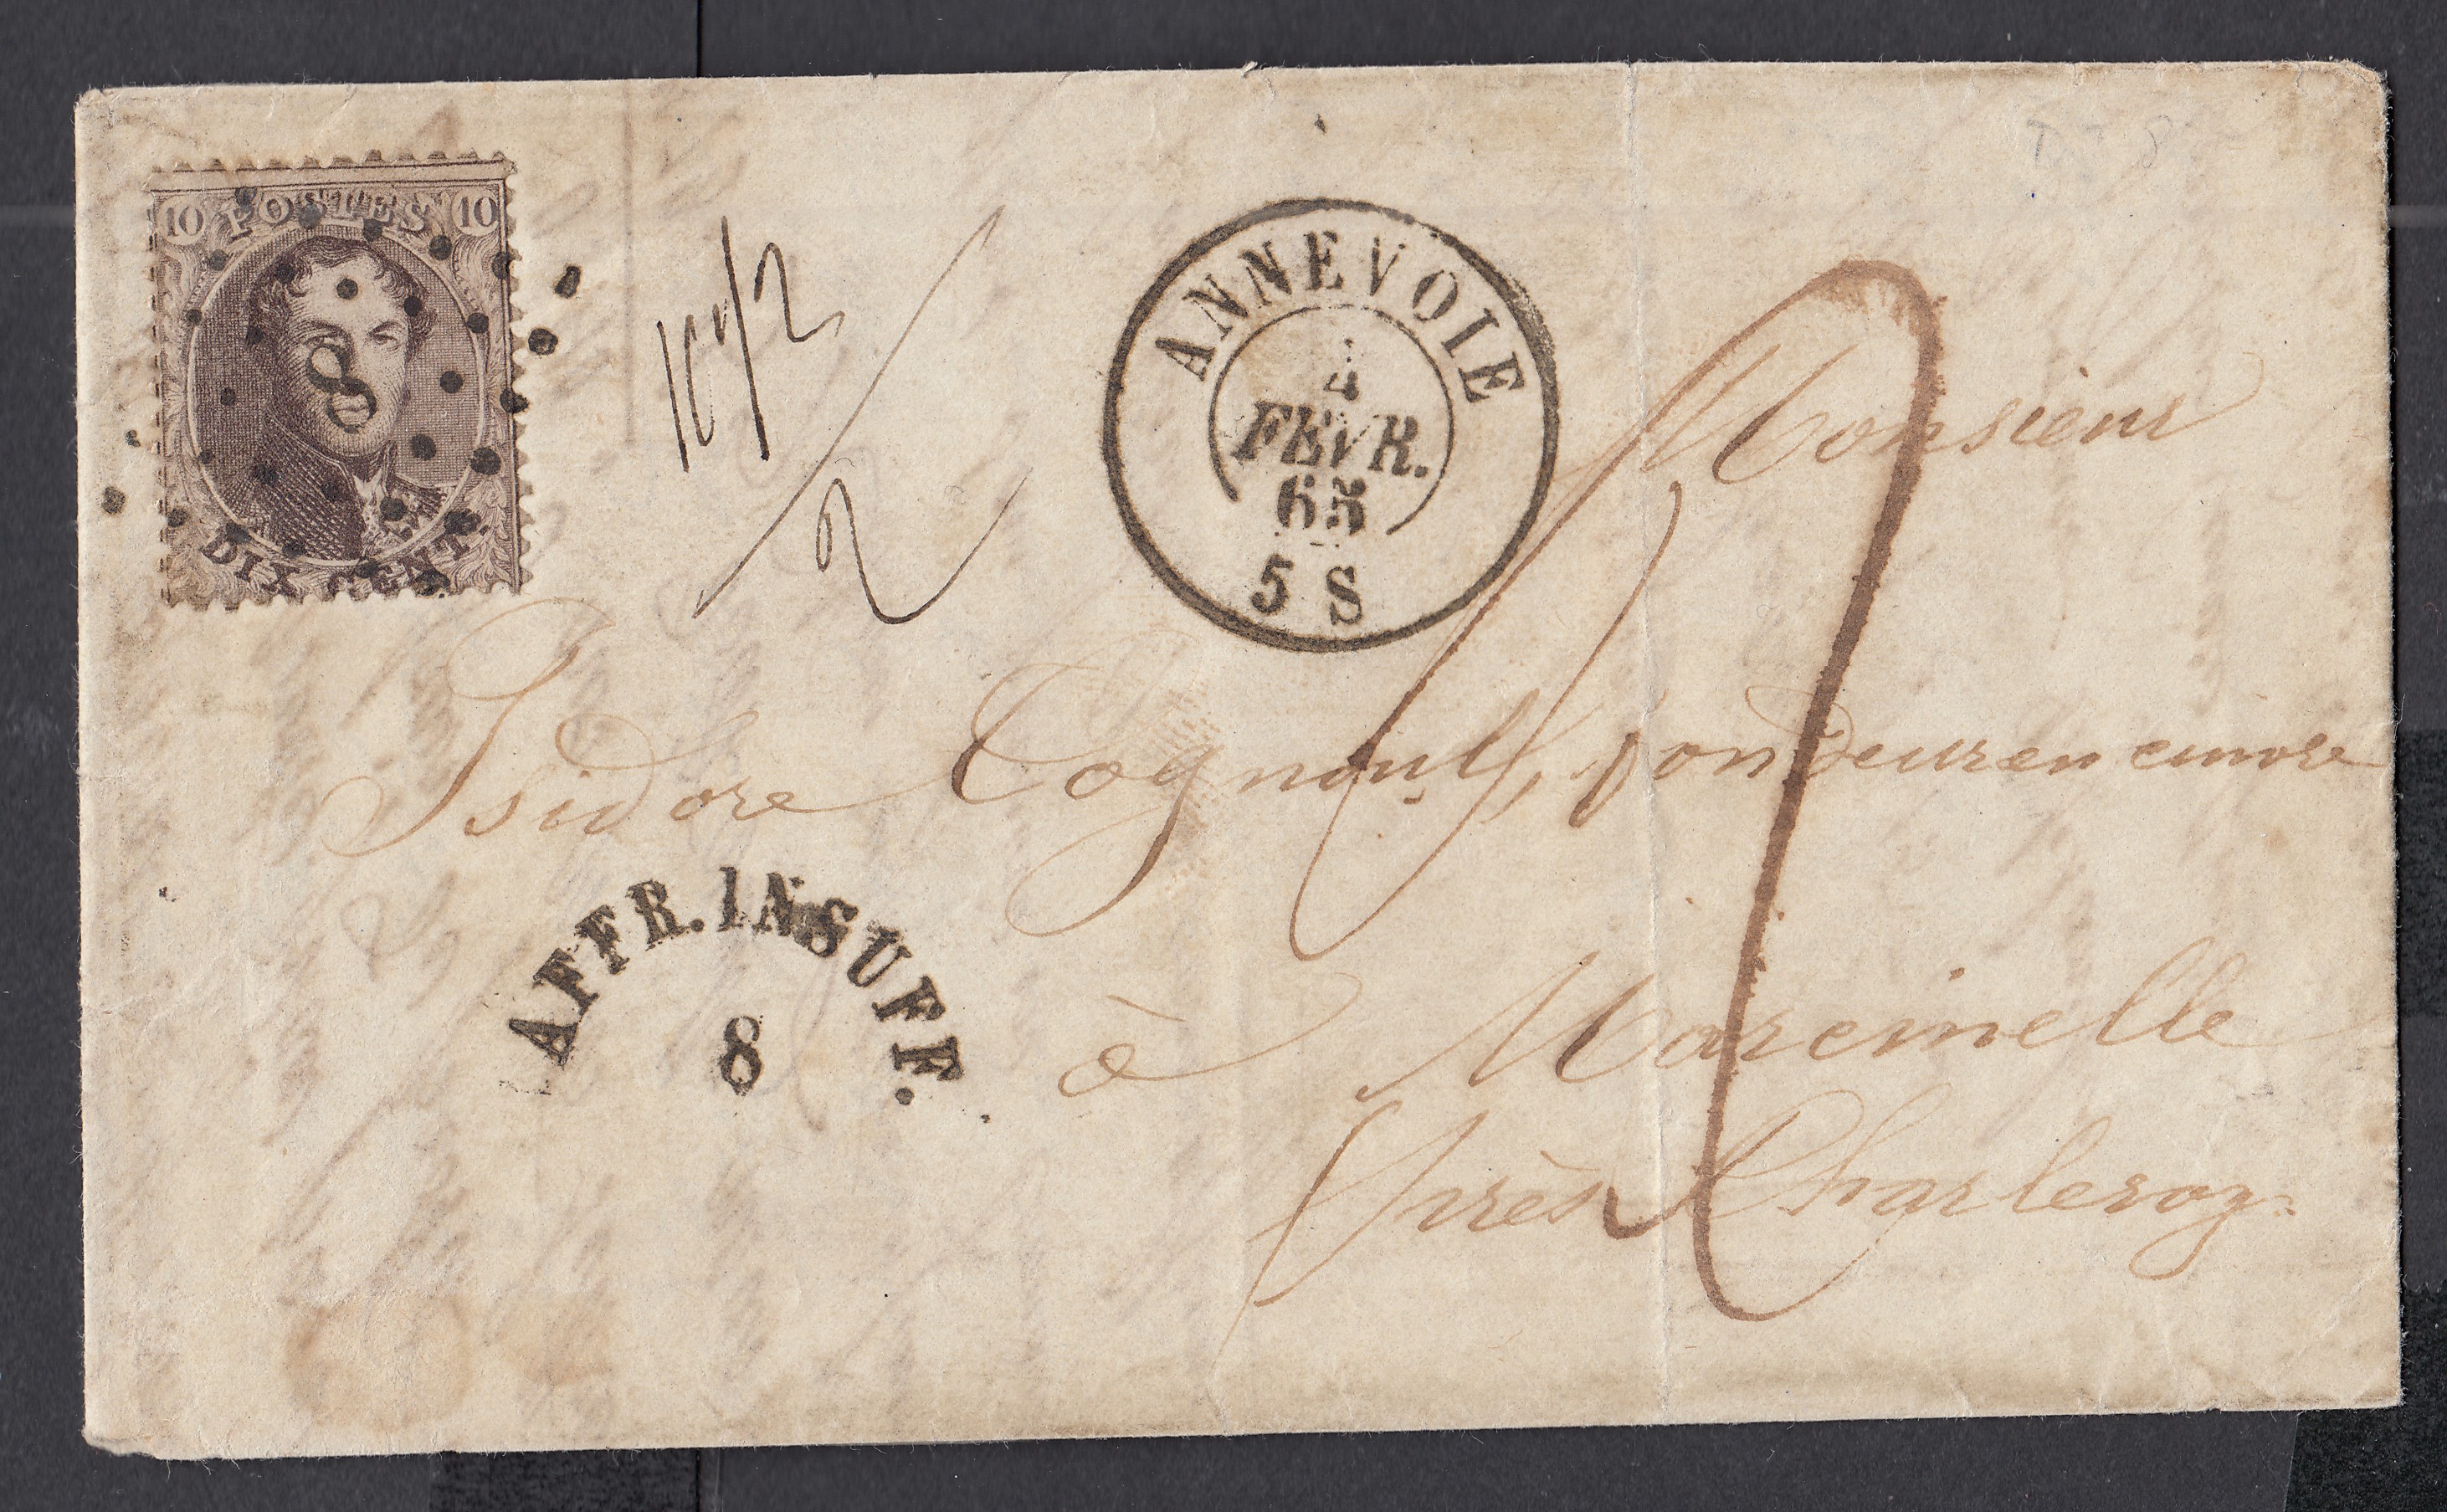 10 POSTES 10
8
DIX CENT.
10 1/2
2
ANNEVOIE
4
FEVR.
65
5 S
Monsieur
Isidore Cognoul, fondeur en cuivre
AFFR. INSUFF.
8
à Marcinelle
Près Charleroy